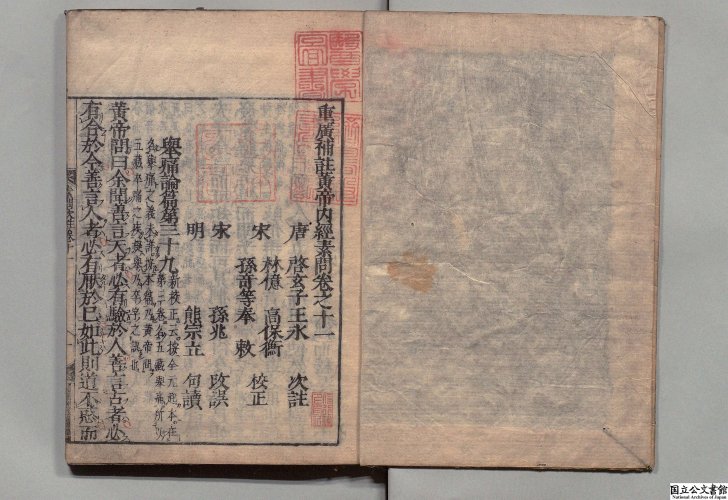 重廣補註黃帝内經素問卷之十一
唐 啓玄子王氷 次註
宋 林億 高保衡
孫竒等奉 敕 校正
宋 孫兆 攺誤
明 熊宗立 句讀
舉痛論篇第三十九
新校正云按全元起本在
第三卷名五藏舉痛所以
名舉痛之義未詳按本篇乃黃帝問
五藏卒痛之疾疑舉乃卒字之誤也
黃帝問曰余聞善言天者必有驗於人善言古者必
有合於今善言人者必有厭於已如此則道不惑而
国立公文書館
National Archives of Japan